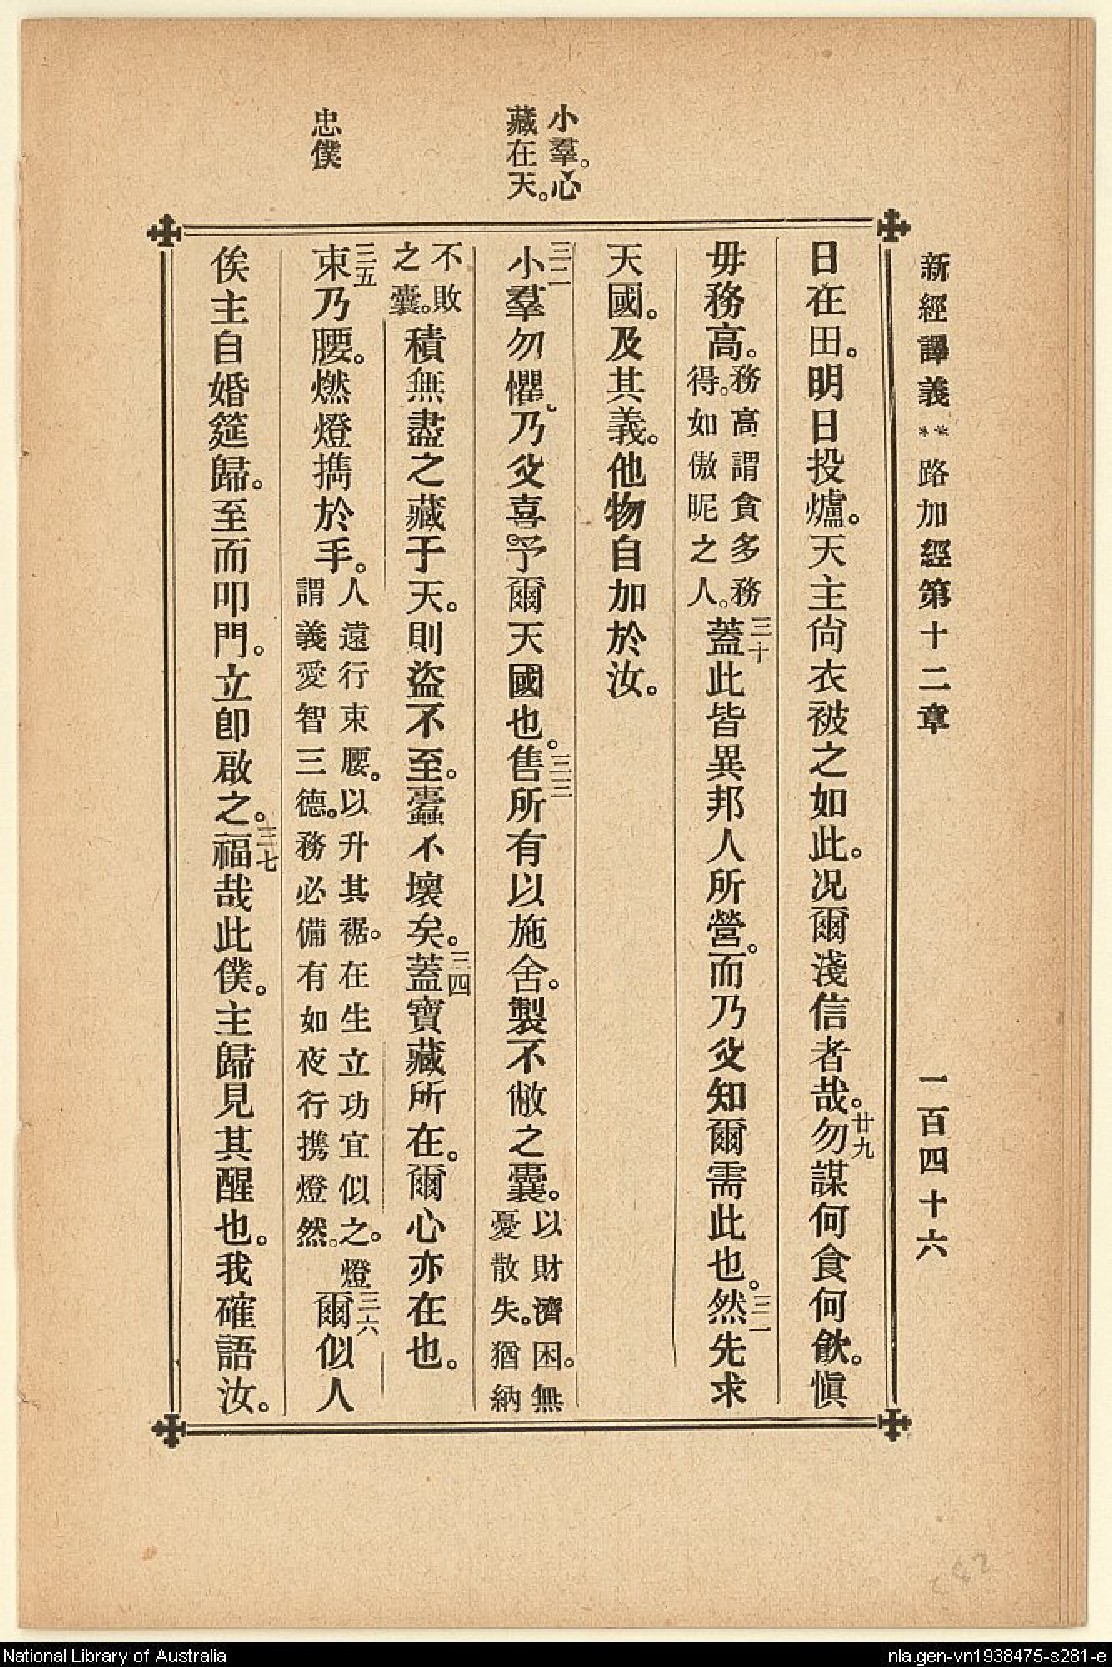 新經譯義 路加經第十二章 一百四十六
小羣。心
藏在天。
忠僕
日在田。明日投爐。天主尙衣被之如此。况爾淺信者哉。廿九勿謀何食何飲。愼
毋務高。務高謂貪多務得。如傲昵之人。三十蓋此皆異邦人所營。而乃父知爾需此也。三一然先求
天國。及其義。他物自加於汝。
三二小羣勿懼。乃父喜予爾天國也。三三售所有以施舍。製不敝之囊。以財濟困。無憂散失。猶納
不敗之囊。積無盡之藏于天。則盜不至。蠹不壞矣。三四蓋寶藏所在。爾心亦在也。
三五束乃腰。燃燈擕於手。人遠行束腰。以升其裾。在生立功宜似之。燈謂義愛智三德。務必備有如夜行携燈然。三六爾似人
俟主自婚筵歸。至而叩門。立卽啟之。三七福哉此僕。主歸見其醒也。我確語汝。
National Library of Australia
nla.gen-vn1938475-s281-e